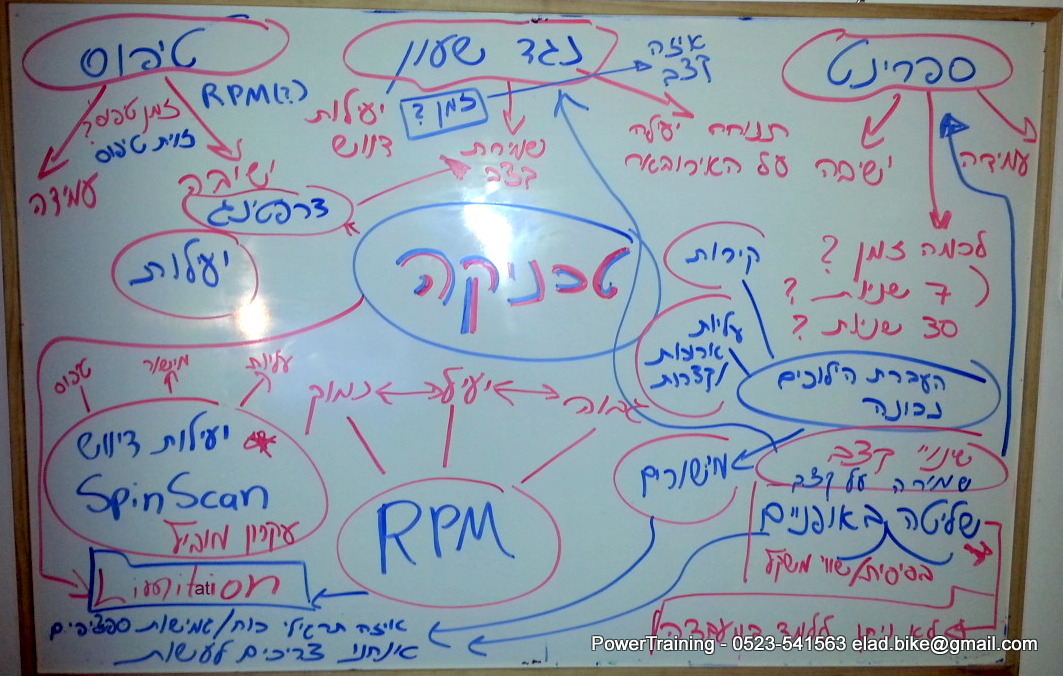 טיפוס
RPM(?)
זמן טפס?
זוית טיפוס
עמידה
ישיבה
דרפטינג
נגד שעון
איזה
קצב
יעילות
דווש
זמן ?
שמירת
קצב
תנוחה יעילה
על האירובאר
ספרינט
ישיבה
עמידה
לכמה זמן ?
7 שניות ?
30 שניות ?
יעלות
טכניקה
קירות
עליות
ארוכות
וקצרות
העברת הילוכים
נכונה
טיפוס
מישור
עליות
יעילות דיווש
SpinScan
עקרון מוביל
נמוך
יעיל
גבוה
RPM
מישורים
שינויי קצב
שמירה על קצב
שליטה באופניים
בסיסית/שווי משקל
Limitation
לא ניתן ללמוד
איזה תרגילי כוח/גמישות ספציפים
אנחנו צריכים לעשות
PowerTraining - 0523-541563 elad.bike@gmail.com